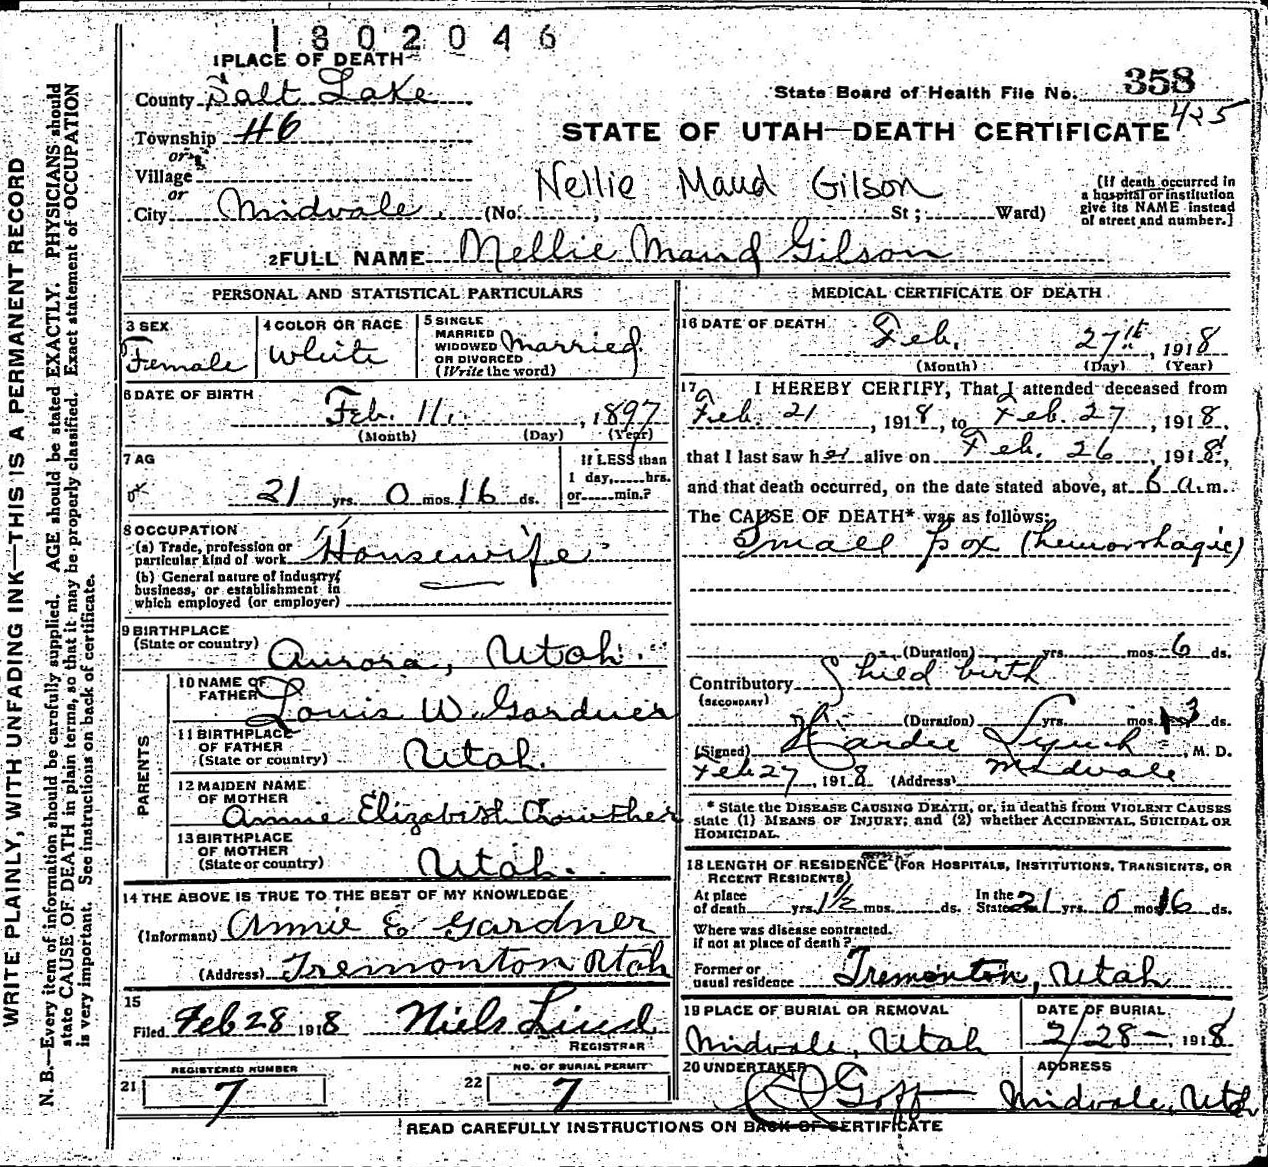 1302046
1 PLACE OF DEATH
County Salt Lake
State Board of Health File No. 358
425
Township #6
STATE OF UTAH—DEATH CERTIFICATE
or
Village
or
Nellie Maud Gilson
City Midvale (No. , St ; Ward)
(If death occurred in a hospital or institution give its NAME instead of street and number.]
2 FULL NAME Nellie Maud Gilson
PERSONAL AND STATISTICAL PARTICULARS
3 SEX Female
4 COLOR OR RACE White
5 SINGLE MARRIED WIDOWED OR DIVORCED (Write the word) Married
6 DATE OF BIRTH Feb. 11, , 1897
(Month) (Day) (Year)
7 AG
21 yrs. 0 mos. 16 ds.
If LESS than 1 day,.....hrs. or.....min.?
8 OCCUPATION
(a) Trade, profession or particular kind of work Housewife
(b) General nature of industry, business, or establishment in which employed (or employer)
9 BIRTHPLACE
(State or country) Aurora, Utah.
PARENTS
10 NAME OF FATHER Louis W. Gardner
11 BIRTHPLACE OF FATHER (State or country) Utah.
12 MAIDEN NAME OF MOTHER Annie Elizabeth Crowther
13 BIRTHPLACE OF MOTHER (State or country) Utah.
14 THE ABOVE IS TRUE TO THE BEST OF MY KNOWLEDGE
(Informant) Annie E Gardner
(Address) Tremonton Utah
15
Filed Feb 28 1918 Niels Lind
REGISTRAR
REGISTERED NUMBER
21 7
NO. OF BURIAL PERMIT
22 7
MEDICAL CERTIFICATE OF DEATH
16 DATE OF DEATH Feb. 27th, 1918
(Month) (Day) (Year)
17 I HEREBY CERTIFY, That I attended deceased from
Feb. 21, 1918, to Feb. 27, 1918,
that I last saw her alive on Feb. 26, 1918,
and that death occurred, on the date stated above, at 6 a.m.
The CAUSE OF DEATH* was as follows:
Small pox (hemorrhagic)
(Duration) yrs. mos. 6 ds.
Contributory Child birth
(SECONDARY)
(Duration) yrs. mos. 3 ds.
(Signed) Hardie Lynch, M. D.
Feb 27, 1918 (Address) Midvale
* State the DISEASE CAUSING DEATH, or, in deaths from VIOLENT CAUSES
state (1) MEANS OF INJURY; and (2) whether ACCIDENTAL, SUICIDAL OR
HOMICIDAL.
18 LENGTH OF RESIDENCE (FOR HOSPITALS, INSTITUTIONS, TRANSIENTS, OR
RECENT RESIDENTS)
At place of death yrs. 1½ mos. ds. In the State 21 yrs. 0 mos. 16 ds.
Where was disease contracted,
if not at place of death?
Former or usual residence Tremonton, Utah
19 PLACE OF BURIAL OR REMOVAL
Midvale, Utah
DATE OF BURIAL
2/28—, 1918
20 UNDERTAKER
Goff
ADDRESS
Midvale, Utah
READ CAREFULLY INSTRUCTIONS ON BACK OF CERTIFICATE
WRITE PLAINLY, WITH UNFADING INK—THIS IS A PERMANENT RECORD
N. B.—Every item of information should be carefully supplied. AGE should be stated EXACTLY. PHYSICIANS should
state CAUSE OF DEATH in plain terms, so that it may be properly classified. Exact statement of OCCUPATION
is very important. See instructions on back of certificate.